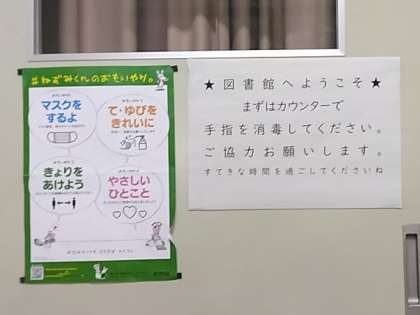 #ねずみくんのおもいやり。
マスクを
するよ
て・ゆびを
きれいに
きょりを
あけよう
やさしい
ひとこと
★図書館へようこそ★
まずはカウンターで
手指を消毒してください。
ご協力お願いします。
すてきな時間を過ごしてくださいね